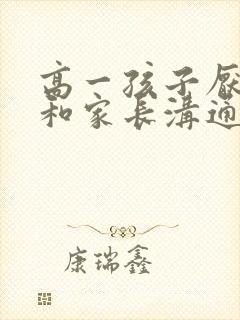 高一孩子厭
和家長溝通
康瑞鑫